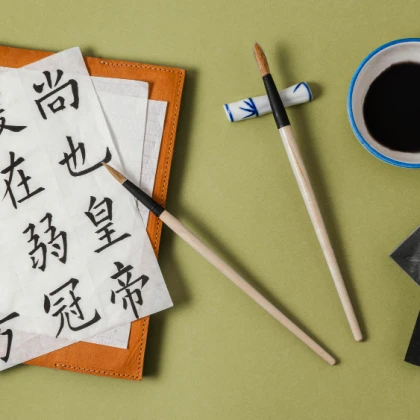 尚也皇帝
在弱冠